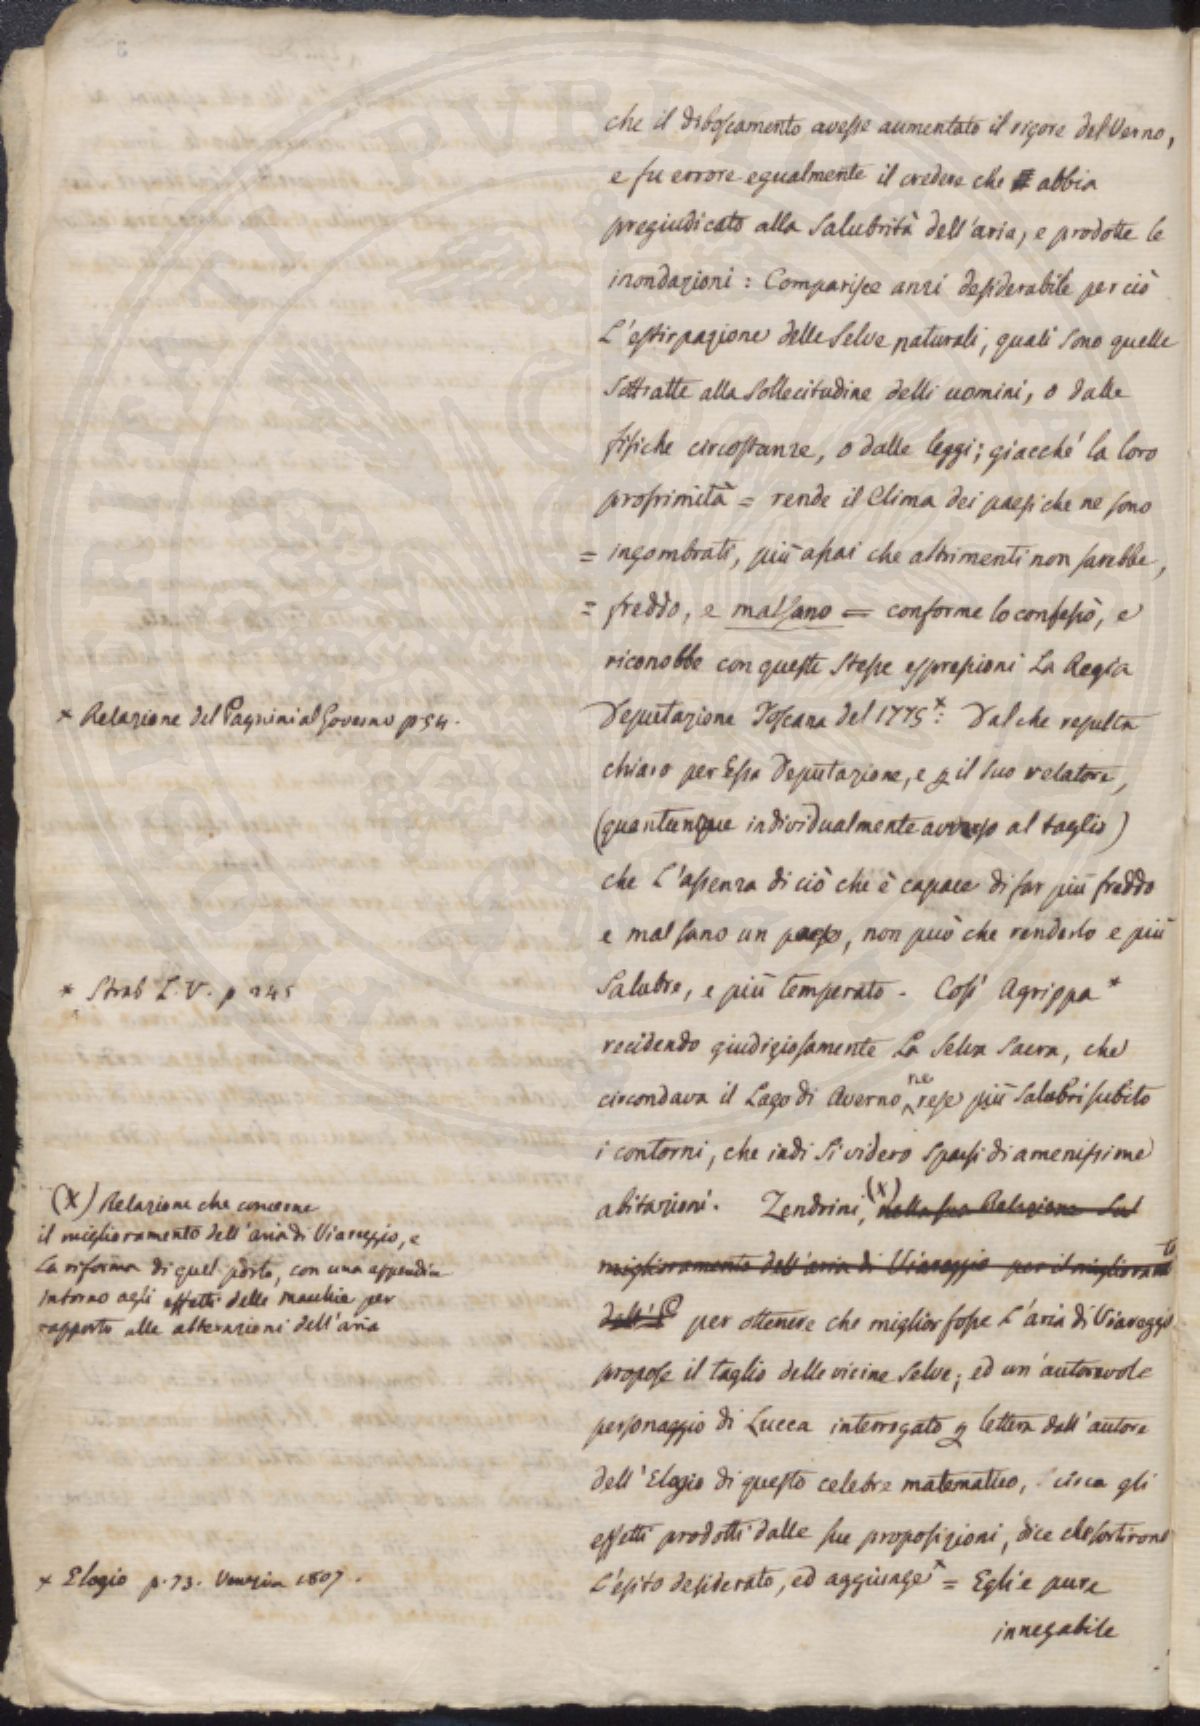 che il diboscamento avesse aumentato il rigore del Verno,
e fu errore egualmente il credere che abbia
pregiudicato alla salubrità dell'aria, e prodotte le
inondazioni : Comparisce anzi desiderabile perciò
L'estirpazione delle Selve naturali, quali sono quelle
sottratte alla sollecitudine delli uomini, o dalle
fisiche circostanze, o dalle leggi; giacché la loro
prossimità = rende il Clima dei paesi che ne sono
= ingombrati, più assai che altrimenti non sarebbe,
= freddo, e malsano = conforme lo confessò, e
riconobbe con queste stesse espressioni La Regia
Deputazione Toscana del 1775 * : Dal che resulta
chiaro per Essa Deputazione, e p il suo relatore,
(quantunque individualmente avverso al taglio)
che L'assenza di ciò che è capace di far più freddo
e mal sano un paese, non può che renderlo e più
Salubre, e più temperato. Così Agrippa *
recidendo giudiziosamente La Selva Sacra, che
circondava il Lago di Averno, ne rese più salubri subito
i contorni, che indi si videro sparsi di amenissime
abitazioni. Zendrini, (X) nella sua Relazione sul
miglioramento dell'aria di Viareggio per il migliorato
dell' per ottenere che miglior fosse L'aria di Viareggio
propose il taglio delle vicine selve; ed un'autorevole
personaggio di Lucca interrogato p lettera dall'autore
dell'Elogio di questo celebre matematico, circa gli
effetti prodotti dalle sue proposizioni, dice che sortirono
L'esito desiderato, ed aggiunge * = Egli è pure
innegabile
* Relazione del Pagnini al Governo p 54.
* Strab L. V. p 245
(X) Relazione che concerne
il miglioramento dell'aria di Viareggio, e
La riforma di quel porto, con una appendice
intorno agli effetti delle macchie per
rapporto alle alterazioni dell'aria
* Elogio p. 73. Venezia 1807.